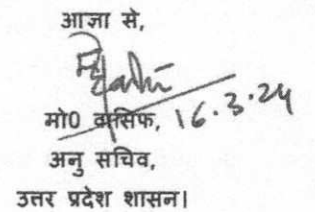 आज्ञा से,
मो0 वासिफ, 16.3.24
अनु सचिव,
उत्तर प्रदेश शासन।